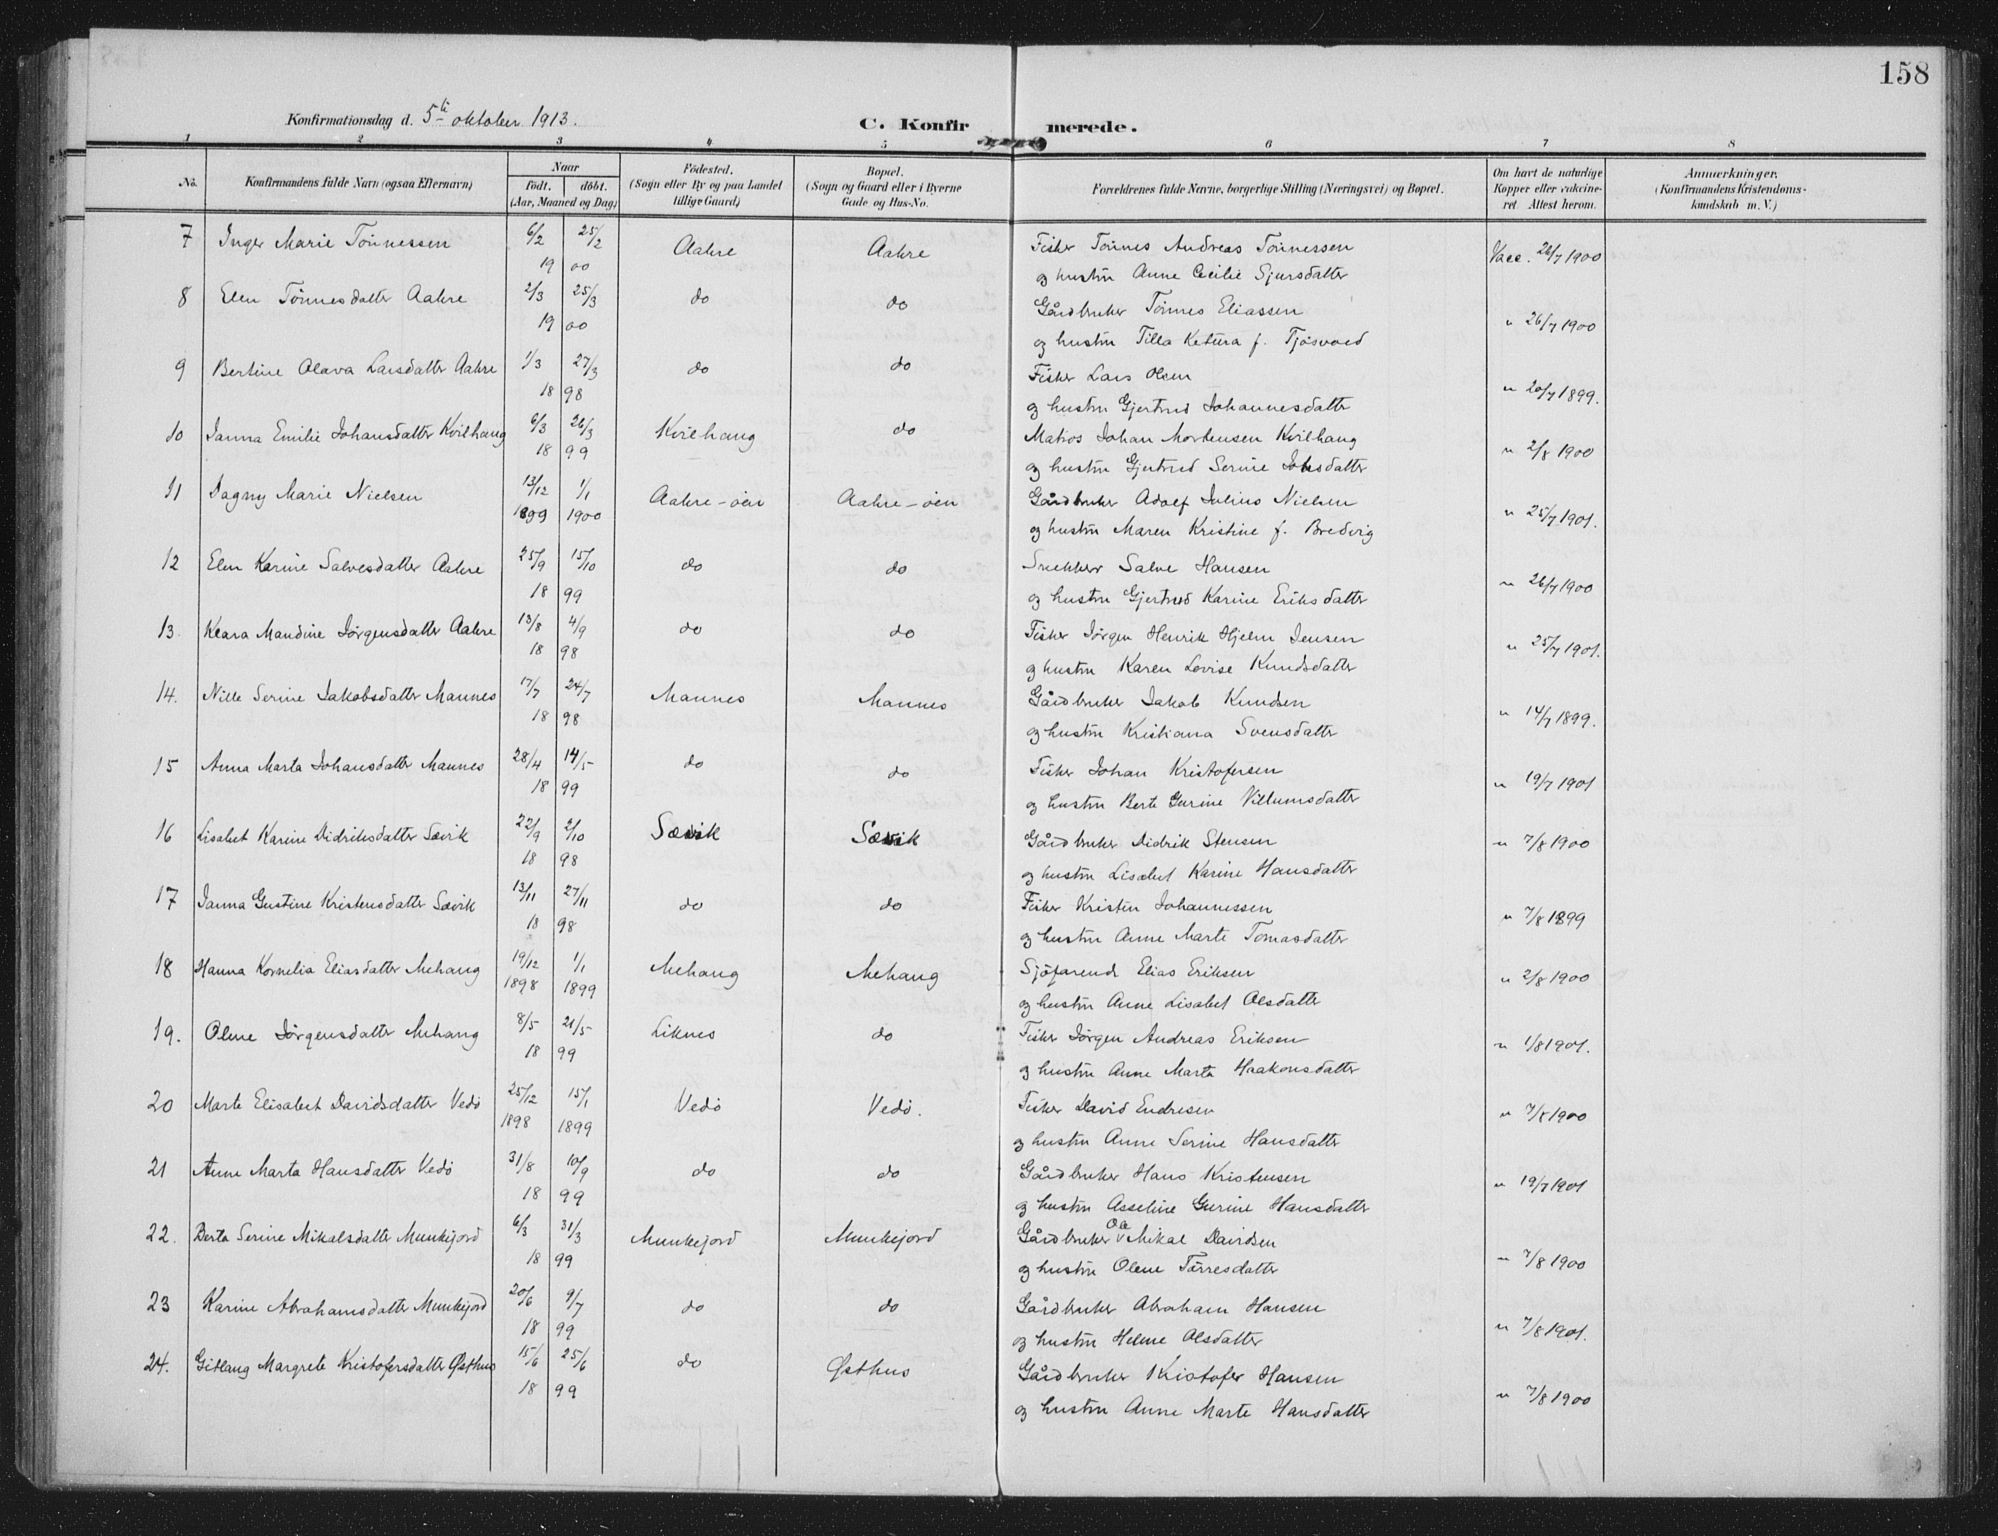 158
Konfirmationsdag d. 5te oktober 1913.
C. Konfirmerede.
1 2 3 4 5 6 7 8
No. Konfirmandens fulde Navn (ogsaa Efternavn) Naar födt. döbt. (Aar, Maaned og Dag) Födested. (Sogn eller By og paa Landet tillige Gaard) Bopæl. (Sogn og Gaard eller i Byerne Gade og Hus-No. Forældrenes fulde Navne, borgerlige Stilling (Næringsvei) og Bopæl. Om havt de naturlige Kopper eller vakcineret. Attest herom. Anmærkninger. (Konfirmandens Kristendomskundskab m. V.)
7 Inger Marie Tönnessen 6/2 25/2 Aakre Aakre Fisker Tönnes Andreas Tönnessen Vacc. 26/7 1900
19 00 og hustru Anne Cecilie Sjursdatter
8 Elen Tönnesdatter Aakre 2/3 25/3 do do Gårdbruker Tönnes Eliassen
19 00 og hustru Tilla Ketura f. Tjösvold " 26/7 1900
9 Bertine Olava Larsdatter Aakre 1/3 27/3 do do Fisker Lars Olsen
18 98 og hustru Gjertrud Johannesdatter " 20/7 1899.
10 Janna Emilie Johansdatter Kvilhaug 6/3 26/3 Kvilhaug do Matros Johan Mortensen Kvilhaug
18 99 og hustru Gjertrud Serine Johsdatter " 2/8 1900
11 Dagny Marie Nielsen 13/12 1/1 Aakre-öen Aakre-öen Gårdbruker Adolf Julius Nielsen
1899 1900 og hustru Maren Kristine f. Bredvig " 25/7 1901.
12 Elen Karine Salvesdatter Aakre 25/9 15/10 do do Snekker Salve Hansen
18 99 og hustru Gjertrud Karine Eriksdatter " 26/7 1900
13. Klara Mandine Jörgensdatter Aakre 13/8 4/9 do do Fisker Jörgen Henrik Hjelm Jensen
18 98 og hustru Karen Lovise Knudsdatter " 25/7 1901.
14. Nille Serine Jakobsdatter Mannes 17/7 24/7 Mannes Mannes Gårdbruker Jakob Knudsen
18 98 og hustru Kristiana Svensdatter " 14/7 1899.
15 Anna Marta Johansdatter Mannes 28/4 14/5 do do Fisker Johan Kristofersen
18 99 og hustru Berte Gurine Villumsdatter " 19/7 1901
16 Lisabet Karine Didriksdatter Sævik 22/9 2/10 Sævik Sævik Gårdbruker Didrik Stensen " 7/8 1900
18 98 og hustru Lisabet Karine Hansdatter
17 Janna Gustine Kristensdatter Sævik 13/11 27/11 do do Fisker Kristen Johannessen
18 98 og hustru Anne Marte Tomasdatter " 7/8 1899
18 Hanna Kornelia Eliasdatter Mehaug 19/12 1/1 Mehaug Mehaug Sjöfarend Elias Eriksen " 2/8 1900
1898 1899 og hustru Anne Lisabet Olsdatter
19. Olene Jörgensdatter Mehaug 8/5 21/5 Liknes do Fisker Jörgen Andreas Eriksen " 1/8 1901.
18 99 og hustru Anne Marta Haakonsdatter
20 Marte Elisabet Davidsdatter Vedö 25/12 15/1 Vedö Vedö. Fisker David Endresen " 7/8 1900
1898 1899 og hustru Anne Serine Hansdatter
21 Anne Marta Hansdatter Vedö 31/8 10/9 do do Gårdbruker Hans Kristensen " 19/7 1901
18 99 og hustru Asseline Gurine Hansdatter
22. Berta Serine Mikalsdatter Munkejord 6/3 31/3 Munkejord Munkejord Gårdbruker Ole Mikal Davidsen
18 99 og hustru Olene Tørresdatter " 7/8 1900
23 Karine Abrahamsdatter Munkejord 20/6 9/7 do do Gårdbruker Abraham Hansen
18 99 og hustru Helene Olsdatter " 7/8 1901.
24. Gitlaug Margrete Kristofersdatter Østhus 15/6 25/6 do Østhus Gårdbruker Kristofer Hansen
18 99 og hustru Anne Marte Hansdatter " 7/8 1900